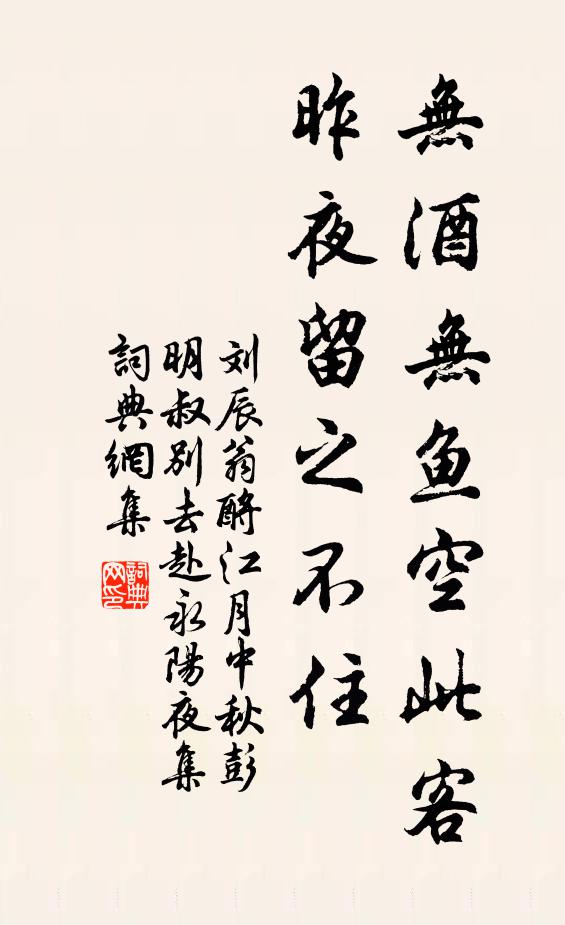 無酒無魚空此客
昨夜留之不住
刘辰翁酹江月中秋彭
明叔别去赴永陽夜集
詞典網集
詞典網印